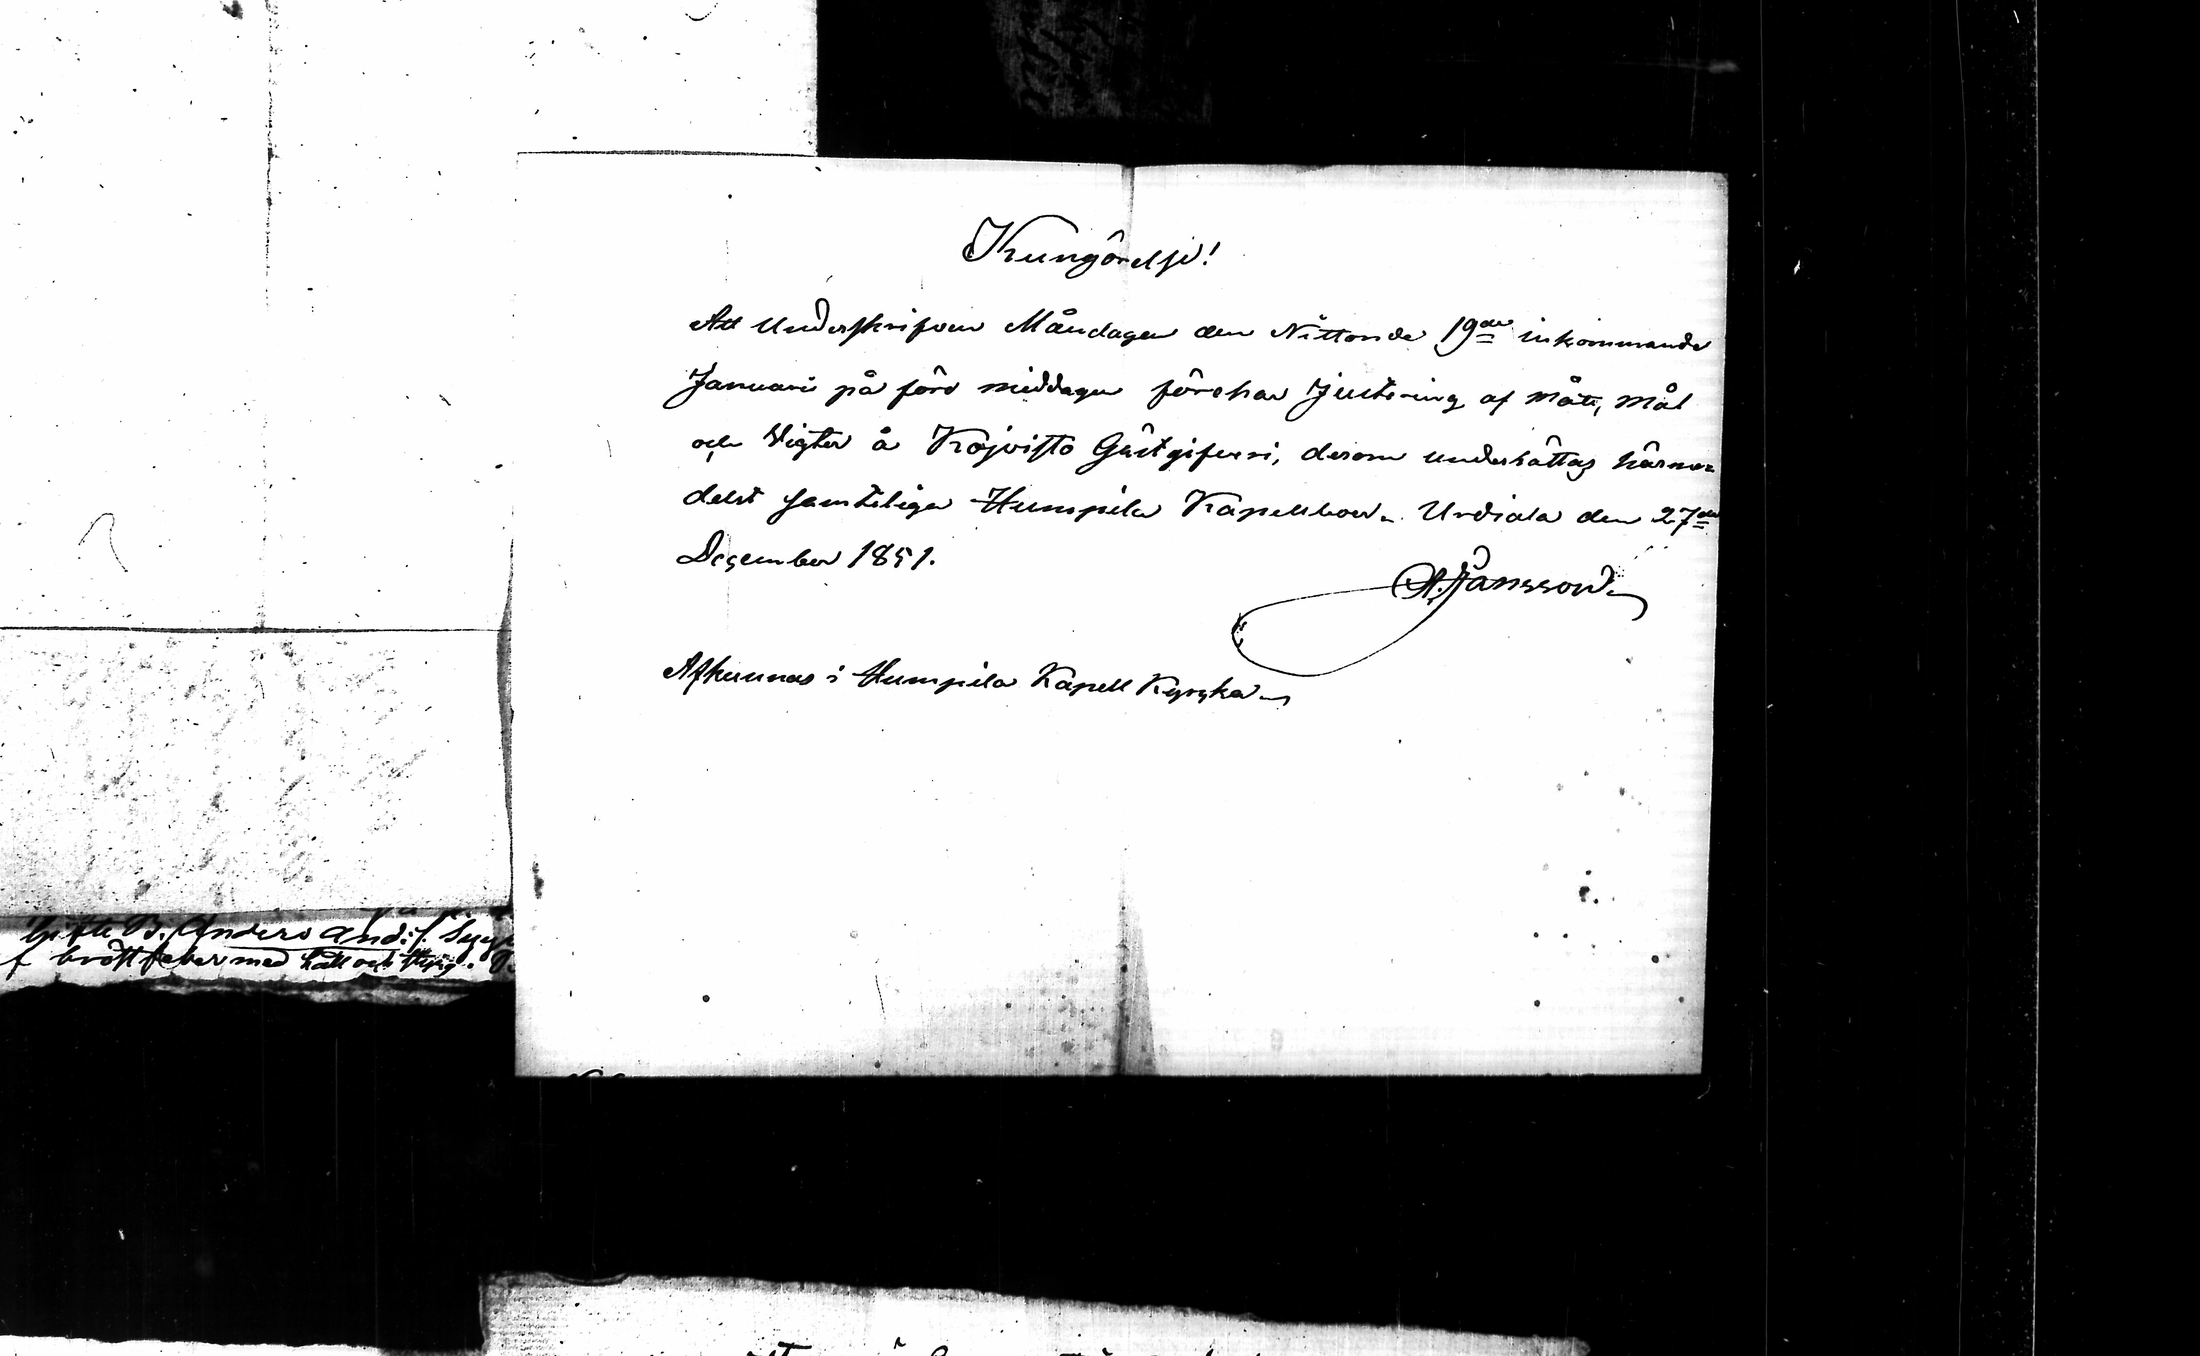 Kungörelse!
Att Underskrifven Måndagen den Nittonde 19de inkommande
Januari på förd middagen förehar Justering af mått, mål
och Vigter å Kojvisto Gästgifveri, derom underrättas härme=
delst samteliga Humpila Kapellboer. Urdiala den 27de
December 1851.
A. Jansson
Afkunnas i Humpila Kapell Kyrcka
B. Anders And:s.
med håll och styng.